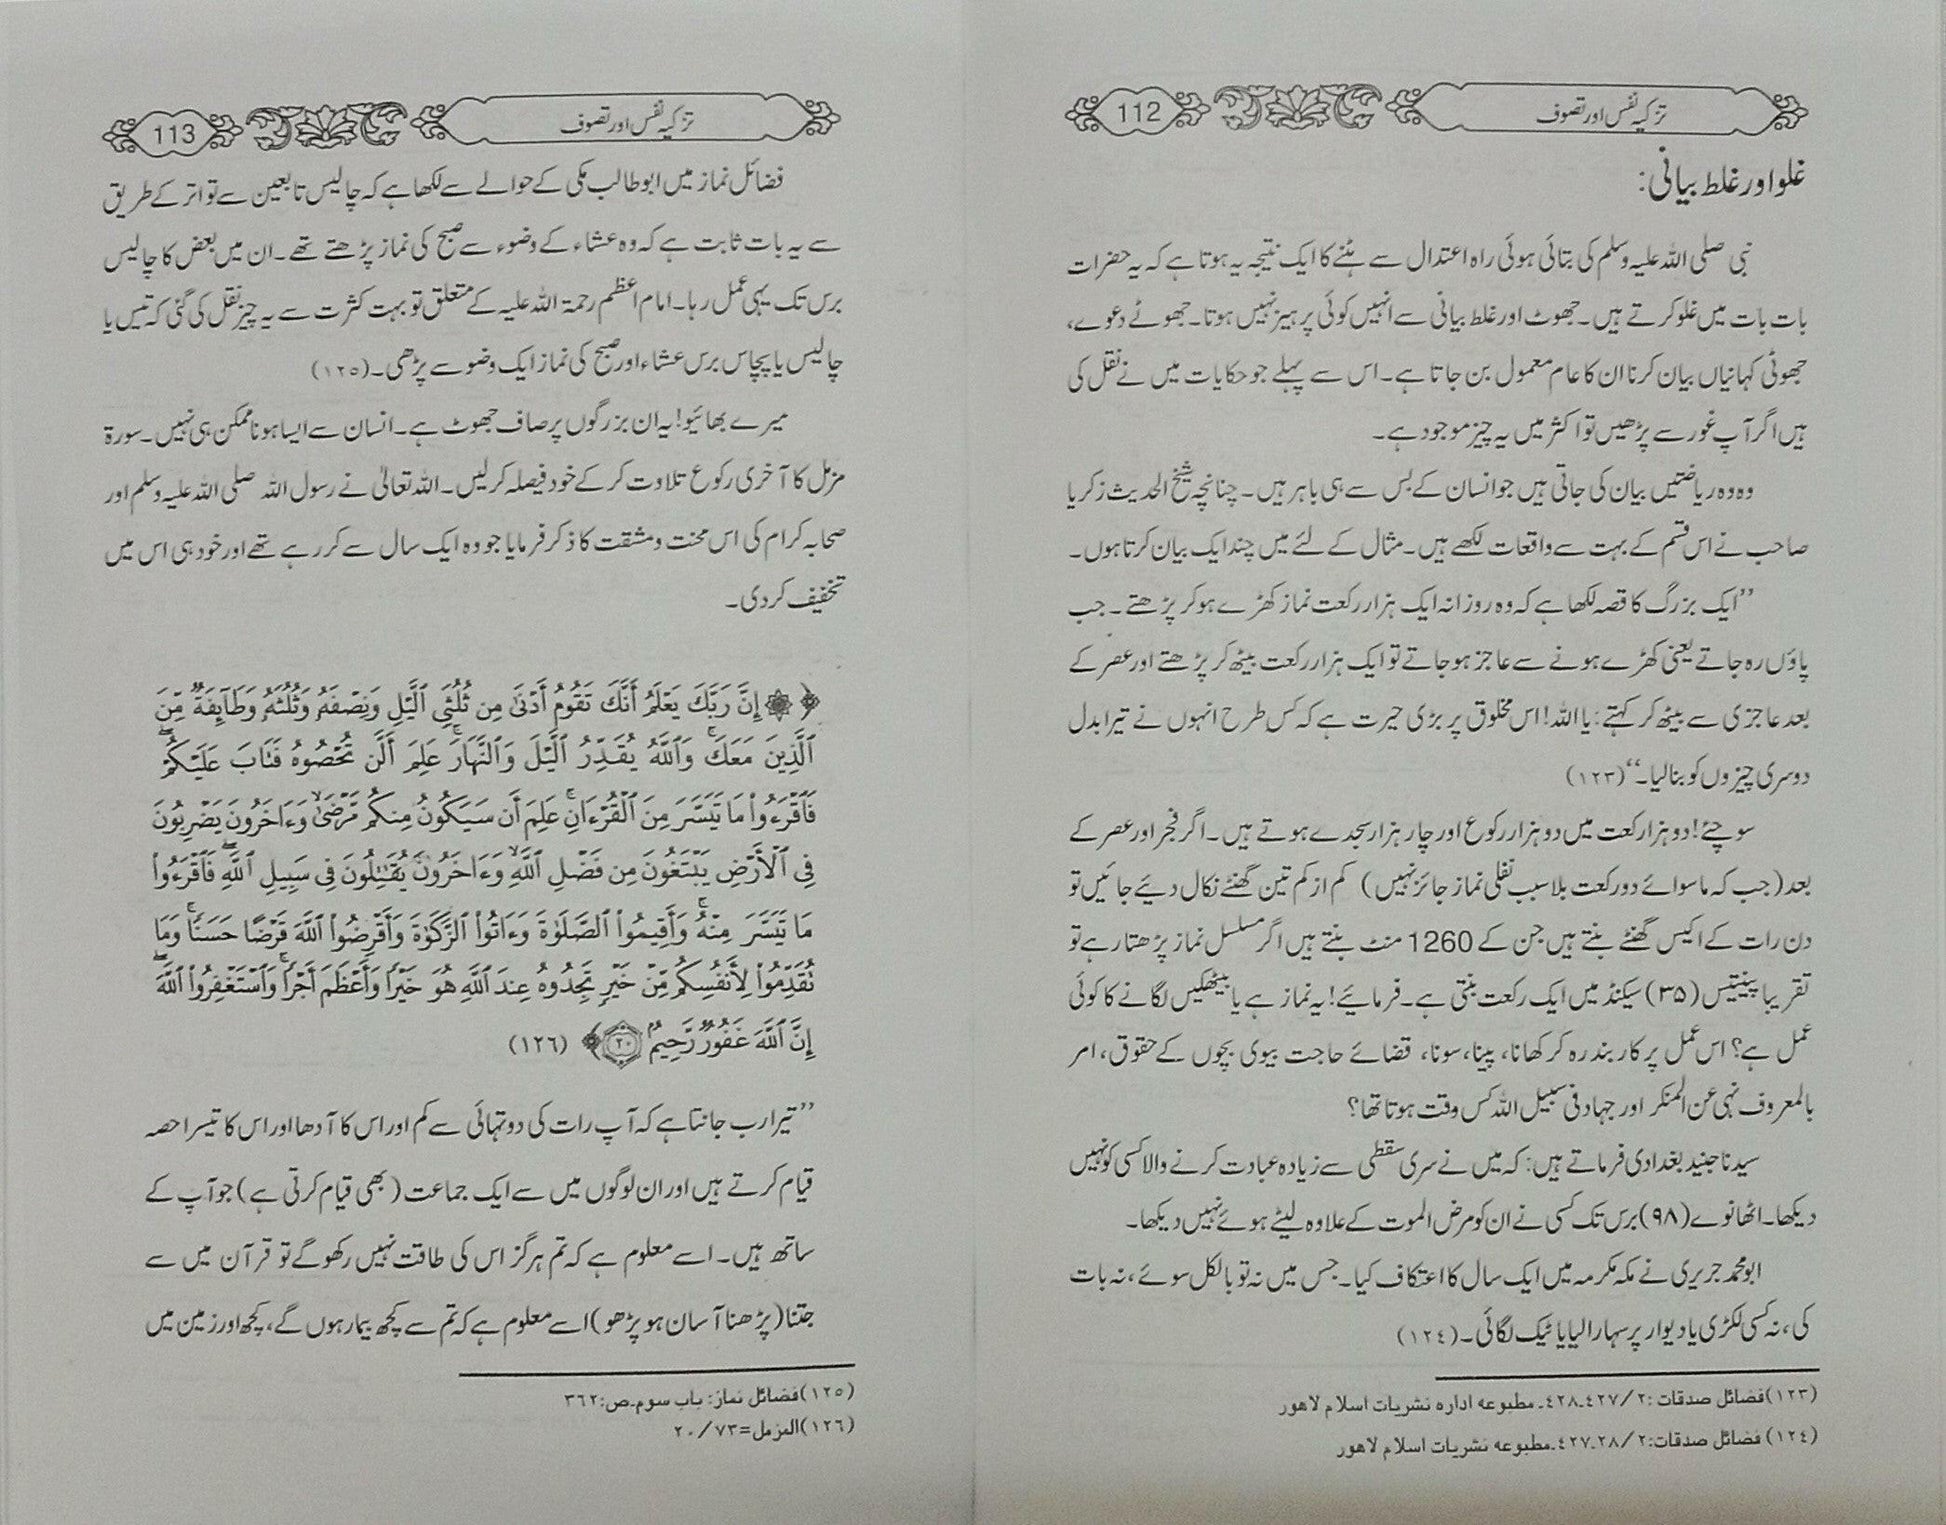 تزکیہ نفس اور تصوف
112
غلو اور غلط بیانی:
نبی صلی اللہ علیہ وسلم کی بتائی ہوئی راہ اعتدال سے ہٹنے کا ایک نتیجہ یہ ہوتا ہے کہ یہ حضرات
بات بات میں غلو کرتے ہیں۔ جھوٹ اور غلط بیانی سے انہیں کوئی پرہیز نہیں ہوتا۔ جھوٹے دعوے،
جھوٹی کہانیاں بیان کرنا ان کا عام معمول بن جاتا ہے۔ اس سے پہلے جو حکایات میں نے نقل کی
ہیں اگر آپ غور سے پڑھیں تو اکثر میں یہ چیز موجود ہے۔
وہ وہ ریاضتیں بیان کی جاتی ہیں جو انسان کے بس سے ہی باہر ہیں۔ چنانچہ شیخ الحدیث زکریا
صاحب نے اس قسم کے بہت سے واقعات لکھے ہیں۔ مثال کے لئے میں چند ایک بیان کرتا ہوں۔
’’ایک بزرگ کا قصہ لکھا ہے کہ وہ روزانہ ایک ہزار رکعت نماز کھڑے ہو کر پڑھتے۔ جب
پاؤں رہ جاتے یعنی کھڑے ہونے سے عاجز ہو جاتے تو ایک ہزار رکعت بیٹھ کر پڑھتے اور عصر کے
بعد عاجزی سے بیٹھ کر کہتے: یا اللہ! اس مخلوق پر بڑی حیرت ہے کہ کس طرح انہوں نے تیرا بدل
دوسری چیزوں کو بنا لیا۔‘‘ (١٢٣)
سوچئے! دو ہزار رکعت میں دو ہزار رکوع اور چار ہزار سجدے ہوتے ہیں۔ اگر فجر اور عصر کے
بعد (جب کہ ماسوائے دو رکعت بلا سبب نفلی نماز جائز نہیں) کم از کم تین گھنٹے نکال دیئے جائیں تو
دن رات کے اکیس گھنٹے بنتے ہیں جن کے 1260 منٹ بنتے ہیں اگر مسلسل نماز پڑھتا رہے تو
تقریبا پینتیس (۳۵) سیکنڈ میں ایک رکعت بنتی ہے۔ فرمائیے! یہ نماز ہے یا بیٹھکیں لگانے کا کوئی
عمل ہے؟ اس عمل پر کاربند رہ کر کھانا، پینا، سونا، قضائے حاجت بیوی بچوں کے حقوق، امر
بالمعروف نہی عن المنکر اور جہاد فی سبیل اللہ کس وقت ہوتا تھا؟
سیدنا جنید بغدادی فرماتے ہیں: کہ میں نے سری سقطی سے زیادہ عبادت کرنے والا کسی کو نہیں
دیکھا۔ اٹھانوے (۹۸) برس تک کسی نے ان کو مرض الموت کے علاوہ لیٹے ہوئے نہیں دیکھا۔
ابو محمد جریری نے مکہ مکرمہ میں ایک سال کا اعتکاف کیا۔ جس میں نہ تو بالکل سوئے، نہ بات
کی، نہ کسی لکڑی یا دیوار پر سہارا لیا یا ٹیک لگائی۔ (١٢٤)
(١٢٣) فضائل صدقات: ٢/٤٢٧۔٤٢٨۔ مطبوعہ ادارہ نشریات اسلام لاہور
(١٢٤) فضائل صدقات: ٢/٢٨۔٤٢٧۔ مطبوعہ نشریات اسلام لاہور
تزکیہ نفس اور تصوف
113
فضائل نماز میں ابو طالب مکی کے حوالے سے لکھا ہے کہ چالیس تابعین سے تواتر کے طریق
سے یہ بات ثابت ہے کہ وہ عشاء کے وضوء سے صبح کی نماز پڑھتے تھے۔ ان میں بعض کا چالیس
برس تک یہی عمل رہا۔ امام اعظم رحمۃ اللہ علیہ کے متعلق تو بہت کثرت سے یہ چیز نقل کی گئی کہ تیس یا
چالیس یا پچاس برس عشاء اور صبح کی نماز ایک وضو سے پڑھی۔ (١٢٥)
میرے بھائیو! یہ ان بزرگوں پر صاف جھوٹ ہے۔ انسان سے ایسا ہونا ممکن ہی نہیں۔ سورۃ
مزمل کا آخری رکوع تلاوت کر کے خود فیصلہ کر لیں۔ اللہ تعالیٰ نے رسول اللہ صلی اللہ علیہ وسلم اور
صحابہ کرام کی اس محنت و مشقت کا ذکر فرمایا جو وہ ایک سال سے کر رہے تھے اور خود ہی اس میں
تخفیف کر دی۔
﴿۞ إِنَّ رَبَّكَ يَعْلَمُ أَنَّكَ تَقُومُ أَدْنَىٰ مِن ثُلُثَيِ ٱلَّيْلِ وَنِصْفَهُۥ وَثُلُثَهُۥ وَطَآئِفَةٌ مِّنَ
ٱلَّذِينَ مَعَكَ ۚ وَٱللَّهُ يُقَدِّرُ ٱلَّيْلَ وَٱلنَّهَارَ ۚ عَلِمَ أَن لَّن تُحْصُوهُ فَتَابَ عَلَيْكُمْ ۖ
فَٱقْرَءُوا۟ مَا تَيَسَّرَ مِنَ ٱلْقُرْءَانِ ۚ عَلِمَ أَن سَيَكُونُ مِنكُم مَّرْضَىٰ ۙ وَءَاخَرُونَ يَضْرِبُونَ
فِى ٱلْأَرْضِ يَبْتَغُونَ مِن فَضْلِ ٱللَّهِ ۙ وَءَاخَرُونَ يُقَـٰتِلُونَ فِى سَبِيلِ ٱللَّهِ ۖ فَٱقْرَءُوا۟
مَا تَيَسَّرَ مِنْهُ ۚ وَأَقِيمُوا۟ ٱلصَّلَوٰةَ وَءَاتُوا۟ ٱلزَّكَوٰةَ وَأَقْرِضُوا۟ ٱللَّهَ قَرْضًا حَسَنًا ۚ وَمَا
تُقَدِّمُوا۟ لِأَنفُسِكُم مِّنْ خَيْرٍ تَجِدُوهُ عِندَ ٱللَّهِ هُوَ خَيْرًا وَأَعْظَمَ أَجْرًا ۚ وَٱسْتَغْفِرُوا۟ ٱللَّهَ ۖ
إِنَّ ٱللَّهَ غَفُورٌ رَّحِيمٌۢ ٢٠﴾ (١٢٦)
’’تیرا رب جانتا ہے کہ آپ رات کی دو تہائی سے کم اور اس کا آدھا اور اس کا تیسرا حصہ
قیام کرتے ہیں اور ان لوگوں میں سے ایک جماعت (بھی قیام کرتی ہے) جو آپ کے
ساتھ ہیں۔ اسے معلوم ہے کہ تم ہرگز اس کی طاقت نہیں رکھو گے تو قرآن میں سے
جتنا (پڑھنا آسان ہو پڑھو) اسے معلوم ہے کہ تم سے کچھ بیمار ہوں گے، کچھ اور زمین میں
(١٢٥) فضائل نماز: باب سوم۔ ص: ٣٦٢
(١٢٦) المزمل= ٧٣/٢٠